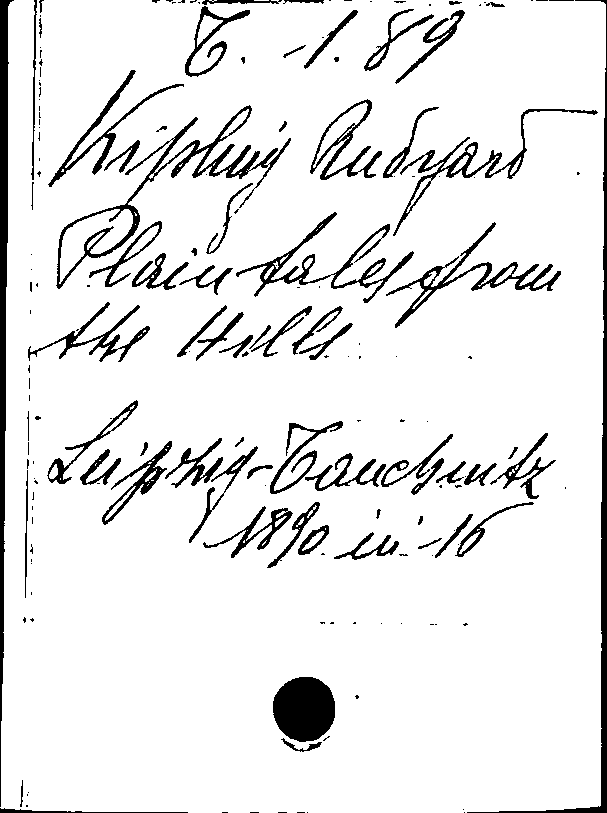 T. -1. 89
Kipling Rudyard
Plain tales from
the Hills
Leipzig-Tauchnitz
1890 in-16